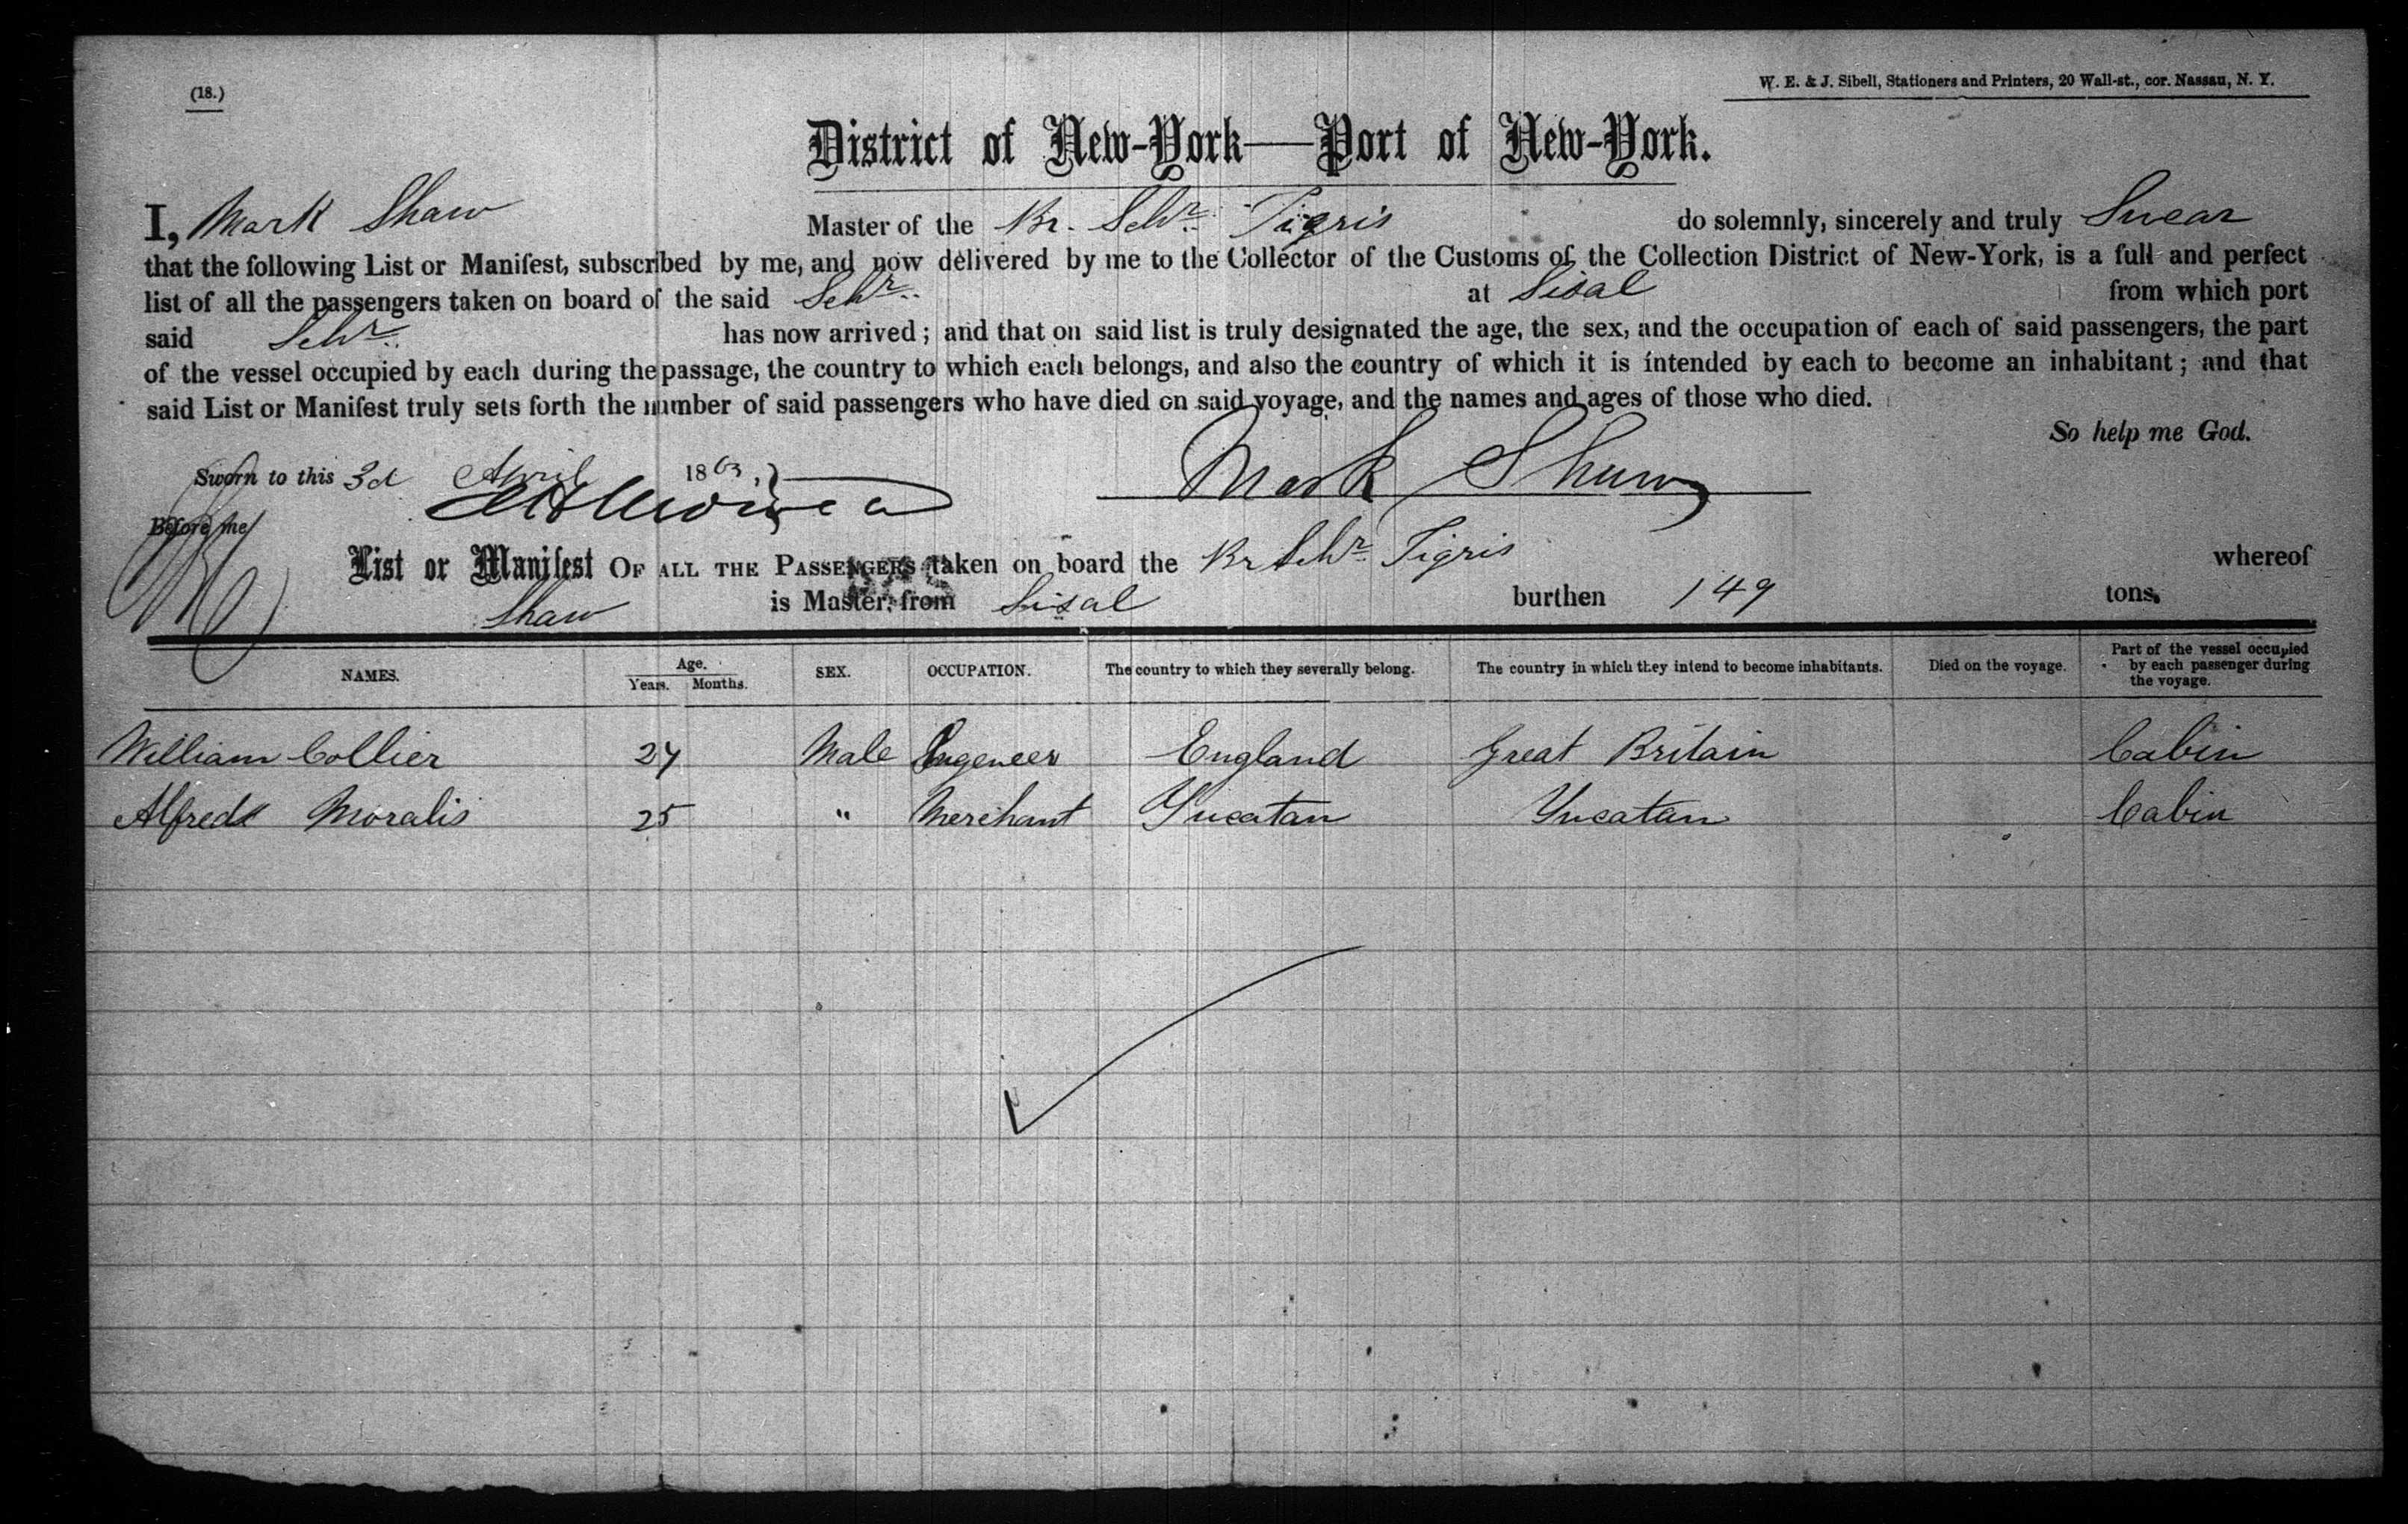 (18.)
W. E. & J. Sibell, Stationers and Printers, 20 Wall-st., cor. Nassau, N. Y.
District of New-York—Port of New-York.
I, Mark Shaw Master of the Br. Schr. Tigris do solemnly, sincerely and truly Swear
that the following List or Manifest, subscribed by me, and now delivered by me to the Collector of the Customs of the Collection District of New-York, is a full and perfect
list of all the passengers taken on board of the said Schr. at Sisal from which port
said Schr. has now arrived; and that on said list is truly designated the age, the sex, and the occupation of each of said passengers, the part
of the vessel occupied by each during the passage, the country to which each belongs, and also the country of which it is intended by each to become an inhabitant; and that
said List or Manifest truly sets forth the number of said passengers who have died on said voyage, and the names and ages of those who died.
So help me God.
Sworn to this 3d April 1863,
Mark Shaw
Before me
List or Manifest OF ALL THE PASSENGERS taken on board the Br Schr Tigris whereof
Shaw is Master, from Sisal burthen 149 tons.
NAMES. Age. Years. Months. SEX. OCCUPATION. The country to which they severally belong. The country in which they intend to become inhabitants. Died on the voyage. Part of the vessel occupied by each passenger during the voyage.
William Collier 24 Male Engeneer England Great Britain Cabin
Alfred Moralis 25 " Merchant Yucatan Yucatan Cabin